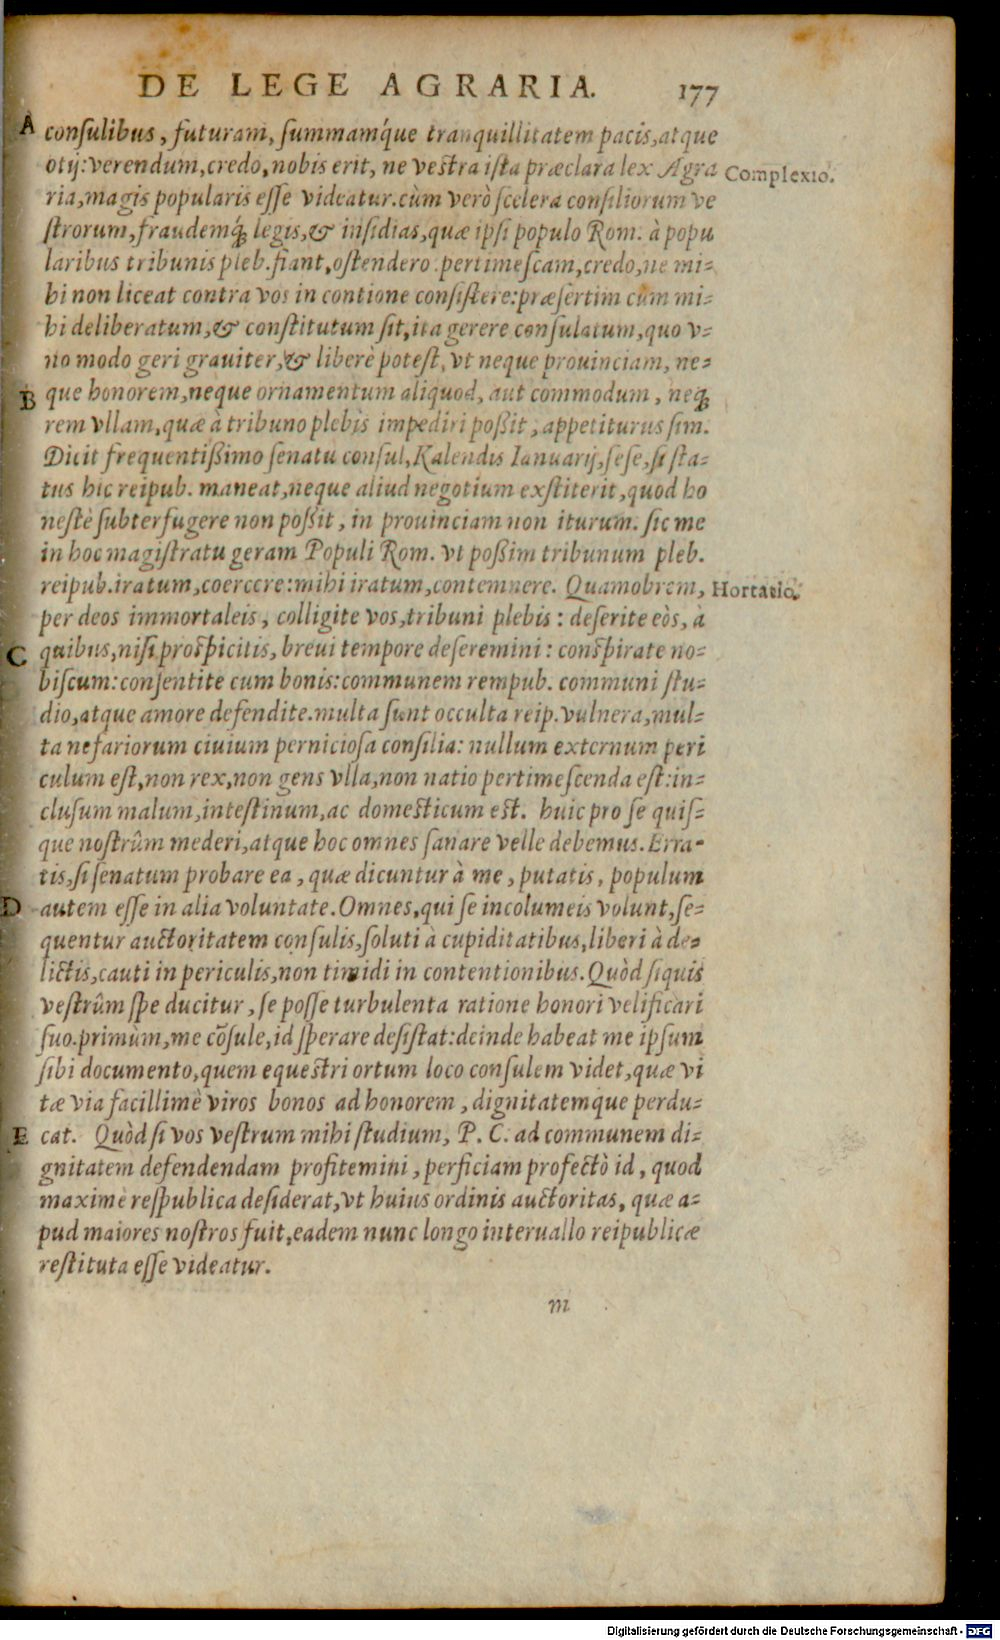 DE LEGE AGRARIA. 177
A consulibus, futuram, summamq́ue tranquillitatem pacis, atque
otij: verendum, credo, nobis erit, ne vestra ista præclara lex Agra Complexio.
ria, magis popularis esse videatur. cùm verò scelera consiliorum ve
strorum, fraudemq́; legis, & insidias, quæ ipsi populo Rom. à popu
laribus tribunis pleb. fiant, ostendero: pertimescam, credo, ne mi-
hi non liceat contra vos in contione consistere: præsertim cum mi-
hi deliberatum, & constitutum sit, ita gerere consulatum, quo v-
no modo geri grauiter, & liberè potest, vt neque prouinciam, ne-
B que honorem, neque ornamentum aliquod, aut commodum, neq;
rem vllam, quæ à tribuno plebis impediri poßit, appetiturus sim.
Dicit frequentißimo senatu consul, Kalendis Ianuarij, sese, si sta-
tus hic reipub. maneat, neque aliud negotium exstiterit, quod ho
nestè subterfugere non poßit, in prouinciam non iturum. sic me
in hoc magistratu geram Populi Rom. vt poßim tribunum pleb.
reipub. iratum, coercere: mihi iratum, contemnere. Quamobrem, Hortatio.
per deos immortaleis, colligite vos, tribuni plebis: deserite eòs, à
C quibus, nisi prospicitis, breui tempore deseremini: conspirate no-
biscum: consentite cum bonis: communem rempub. communi stu-
dio, atque amore defendite. multa sunt occulta reip. vulnera, mul-
ta nefariorum ciuium perniciosa consilia: nullum externum peri
culum est, non rex, non gens vlla, non natio pertimescenda est: in-
clusum malum, intestinum, ac domesticum est. huic pro se quis-
que nostrûm mederi, atque hoc omnes sanare velle debemus. Erra-
tis, si senatum probare ea, quæ dicuntur à me, putatis, populum
D autem esse in alia voluntate. Omnes, qui se incolumeis volunt, se-
quentur auctoritatem consulis, soluti à cupiditatibus, liberi à de-
lictis, cauti in periculis, non timidi in contentionibus. Quòd siquis
vestrûm spe ducitur, se posse turbulenta ratione honori velificari
suo. primùm, me cõsule, id sperare desistat: deinde habeat me ipsum
sibi documento, quem equestri ortum loco consulem videt, quæ vi
tæ via facillimè viros bonos ad honorem, dignitatemque perdu-
E cat. Quòd si vos vestrum mihi studium, P. C. ad communem di-
gnitatem defendendam profitemini, perficiam profectò id, quod
maximè respublica desiderat, vt huius ordinis auctoritas, quæ a-
pud maiores nostros fuit, eadem nunc longo interuallo reipublicæ
restituta esse videatur.
m
Digitalisierung gefördert durch die Deutsche Forschungsgemeinschaft - DFG